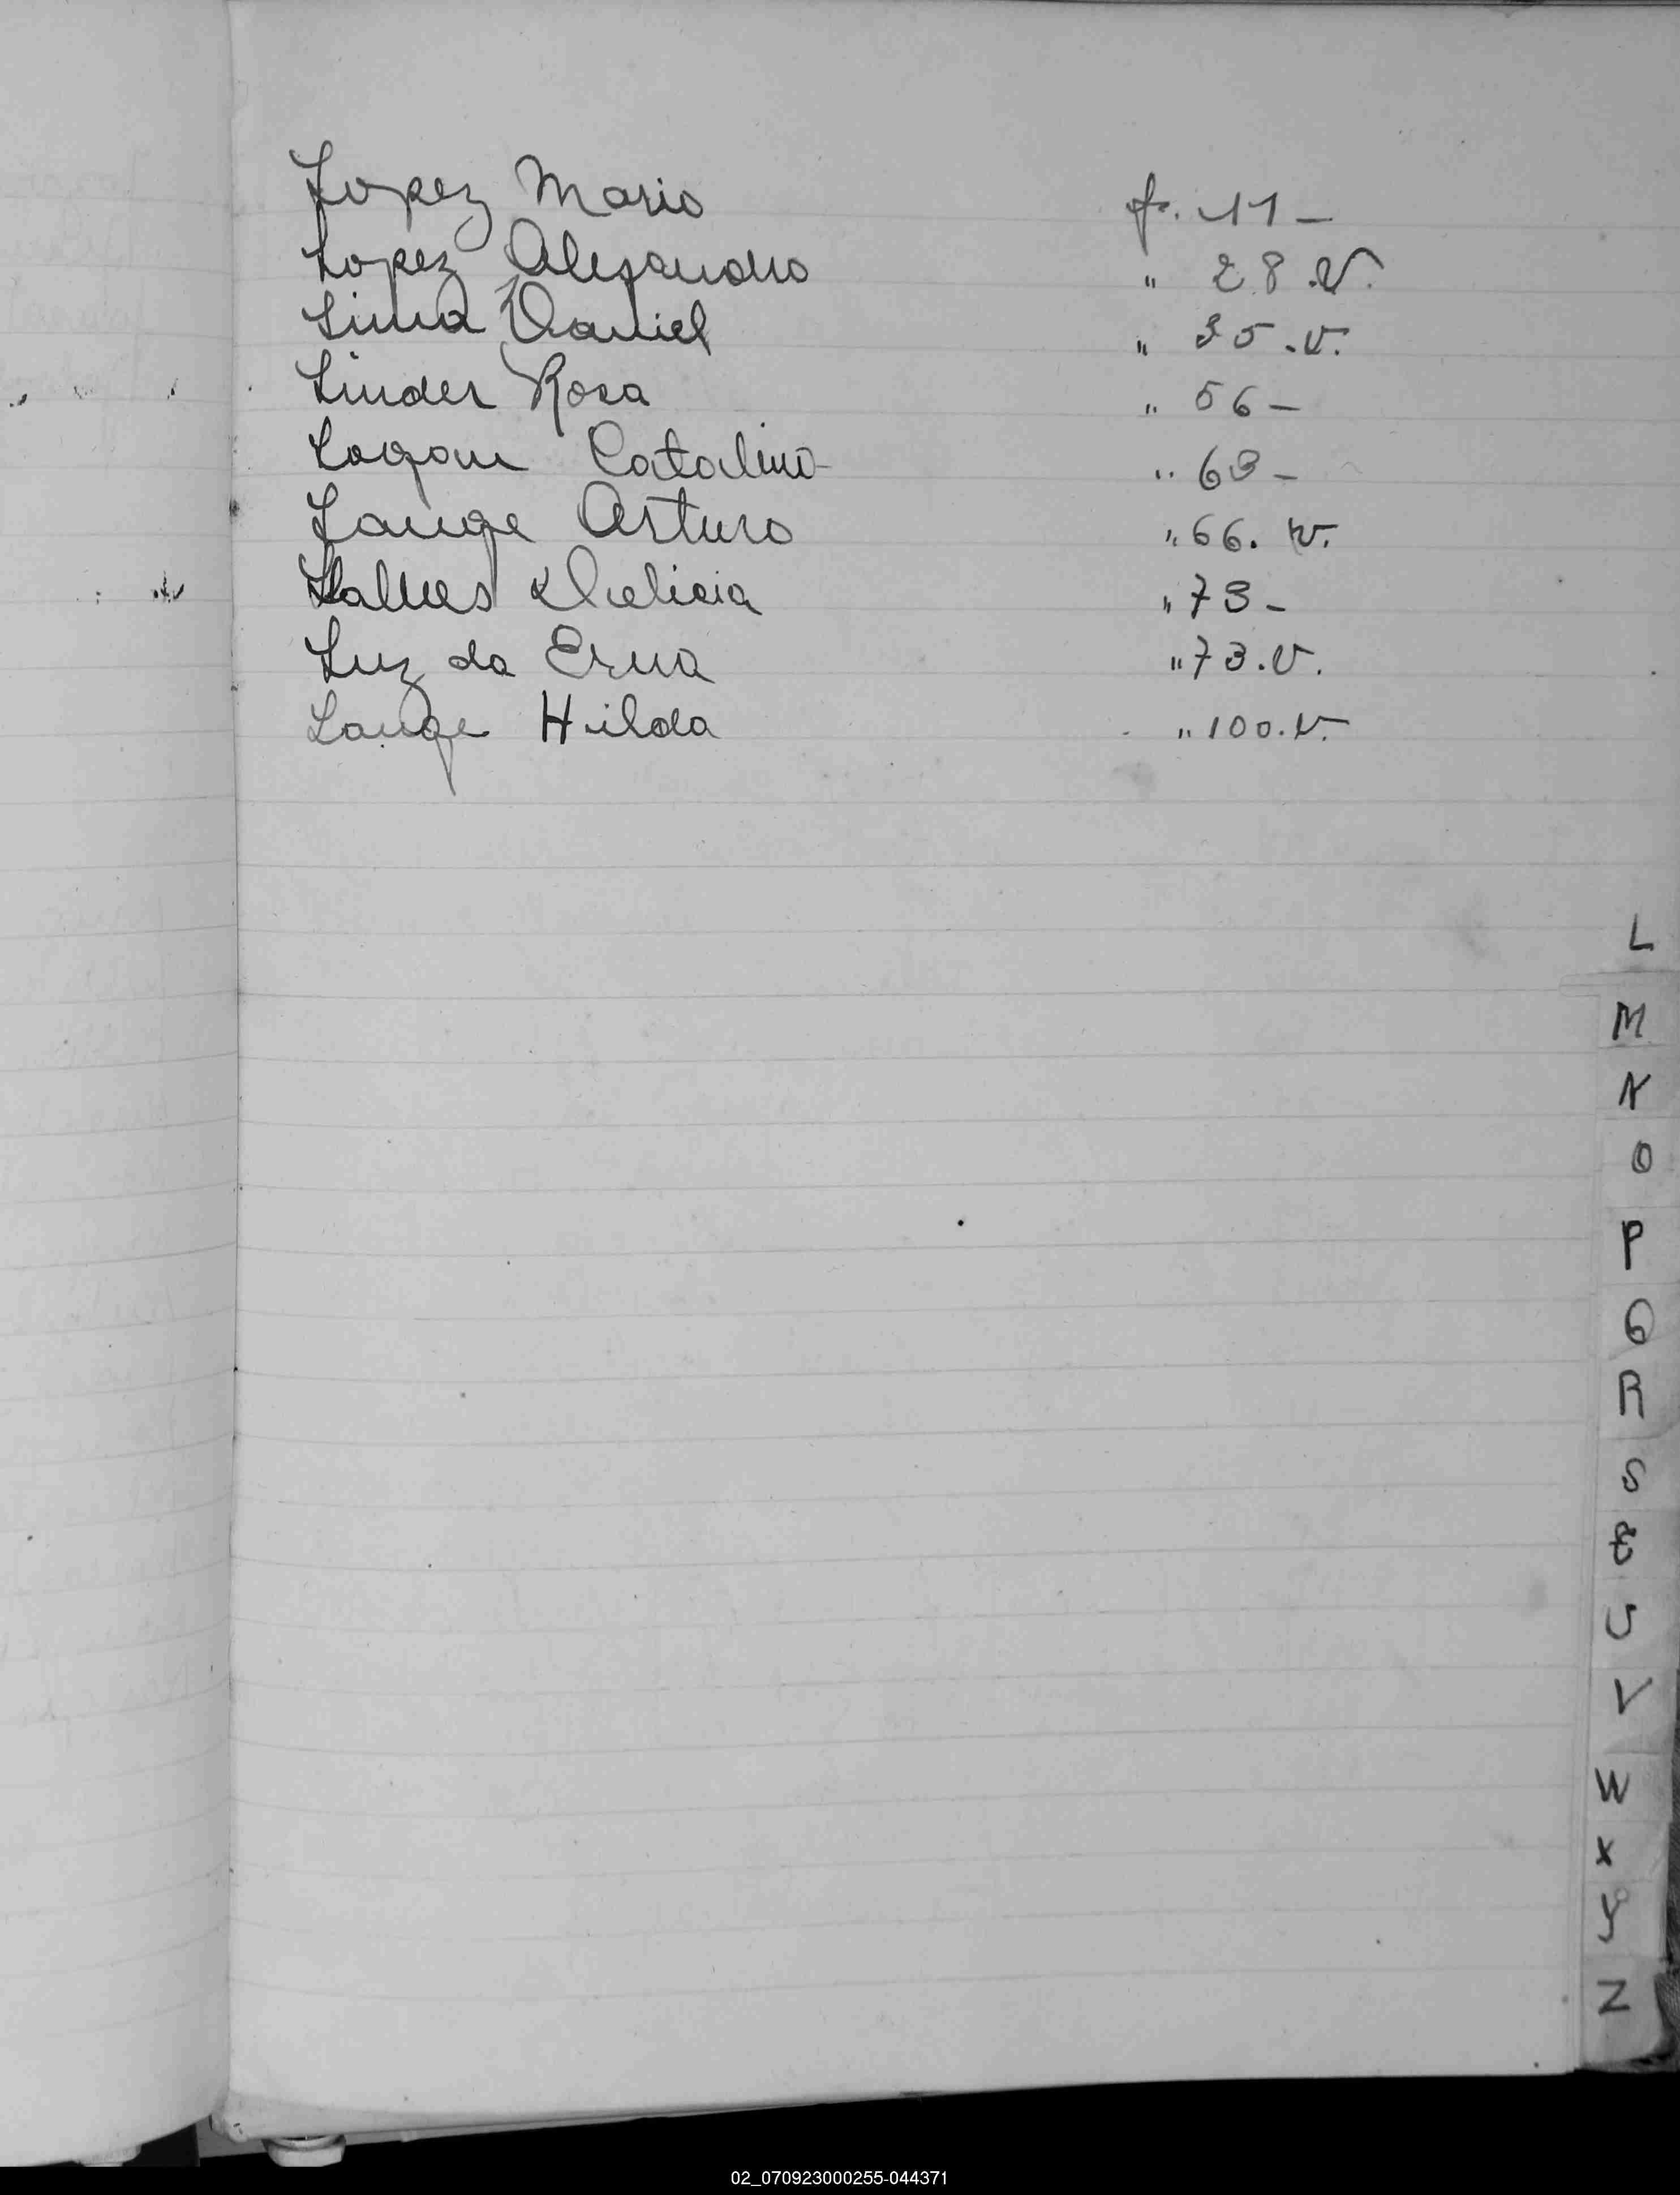 Lopez Mario f. 11 -
Lopez Alejandro " 28.v.
Lima Daniel " 35.v.
Linder Rosa " 56 -
Logan Catalina " 63 -
Lange Arturo " 66. v.
Delicia " 73 -
Luz da Erna " 73.v.
Lange Hilda " 100.v.
L
M
N
O
P
Q
R
S
T
U
V
W
X
Y
Z
02_070923000255-044371